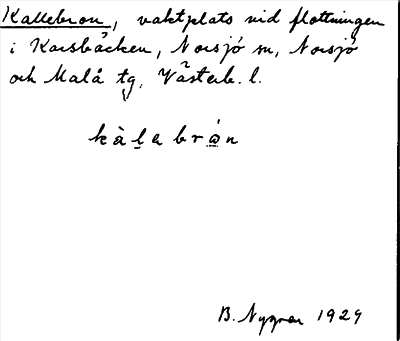 Kallebron, vaktplats vid flottningen
i Korsbäcken, Norsjö sn, Norsjö
och Malå tg, Västerb. l.
kàlebrån
B. Nygren 1929